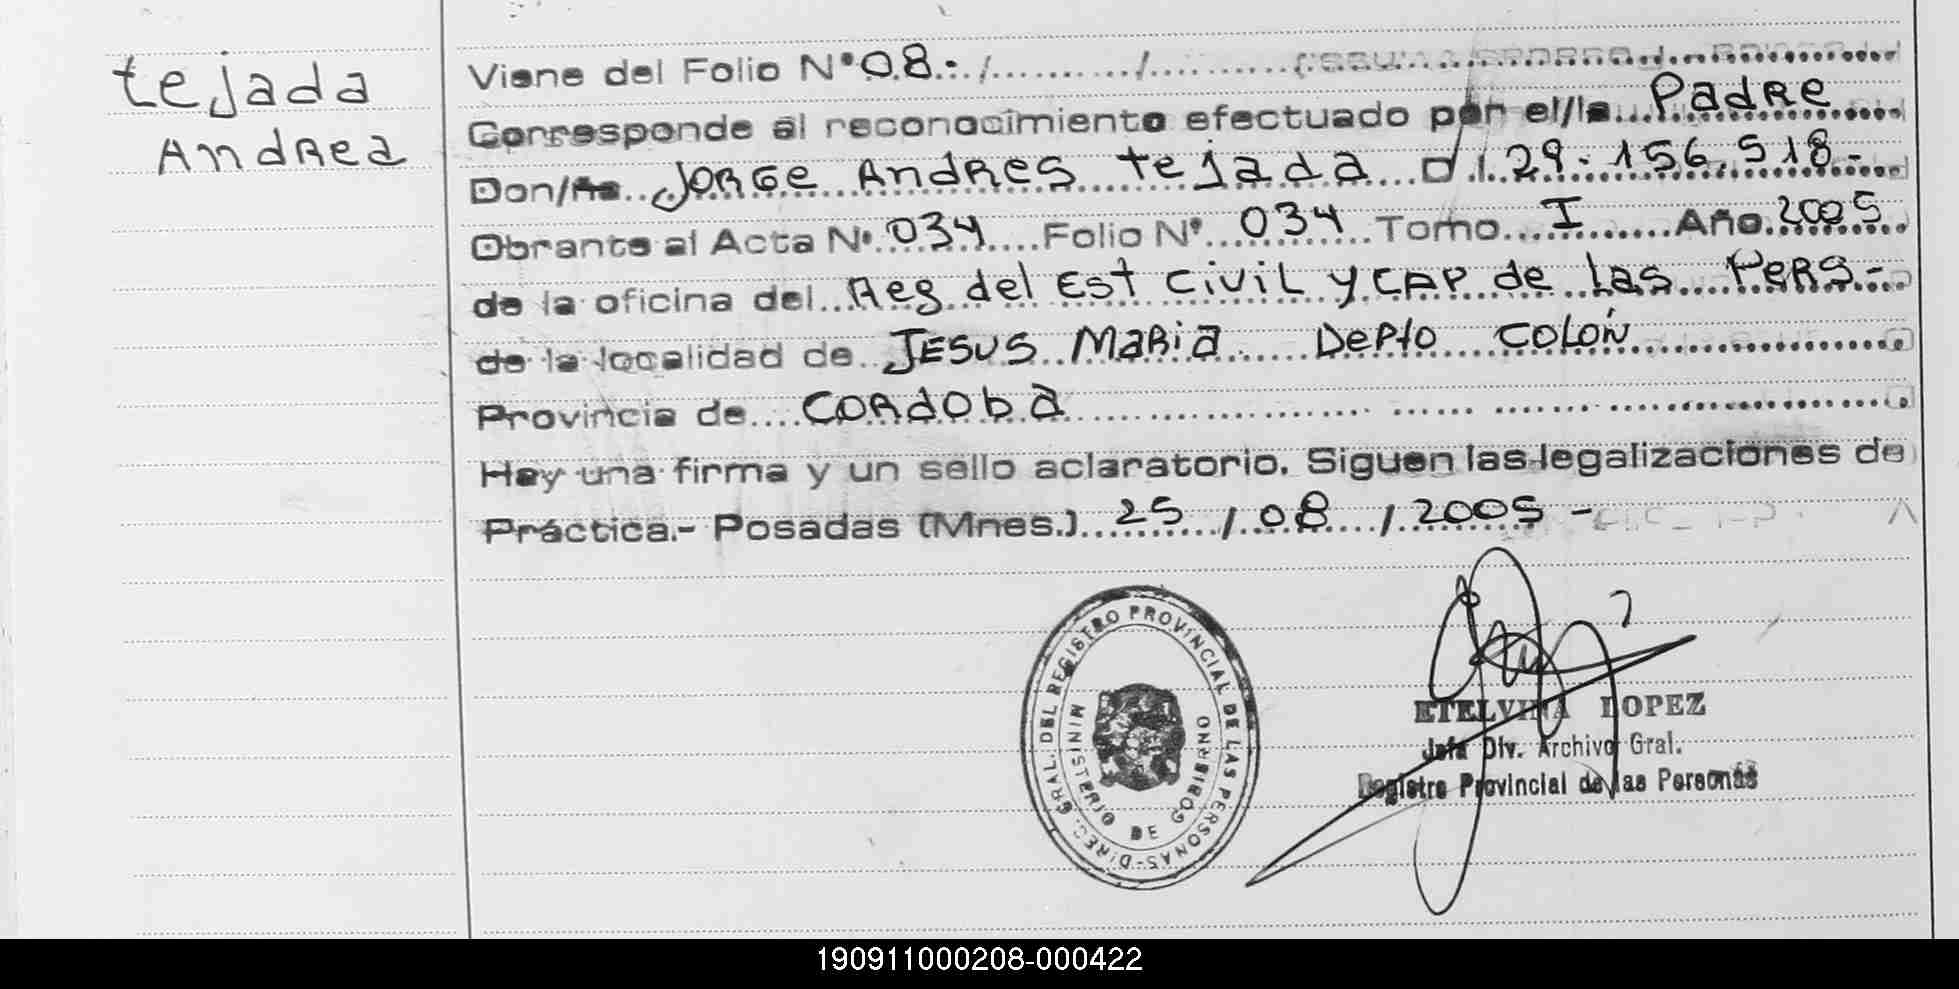 tejada
Andrea
Viene del Folio N° 08.- / /
Corresponde al reconocimiento efectuado por el/la Padre
Don/ña Jorge Andres tejada D.I. 29.156.518-
Obrante al Acta N° 034 Folio N° 034 Tomo I Año 2005
de la oficina del Reg del Est Civil y Cap de las Pers-
de la localidad de Jesus Maria Depto Colón
Provincia de Cordoba
Hay una firma y un sello aclaratorio. Siguen las legalizaciones de
Práctica.- Posadas (Mnes.) 25 / 08 / 2005 -
DIREC. GRAL. DEL REGISTRO PROVINCIAL DE LAS PERSONAS-
MINISTERIO DE GOBIERNO
ETELVINA LOPEZ
Jefa Div. Archivo Gral.
Registro Provincial de las Personas
190911000208-000422